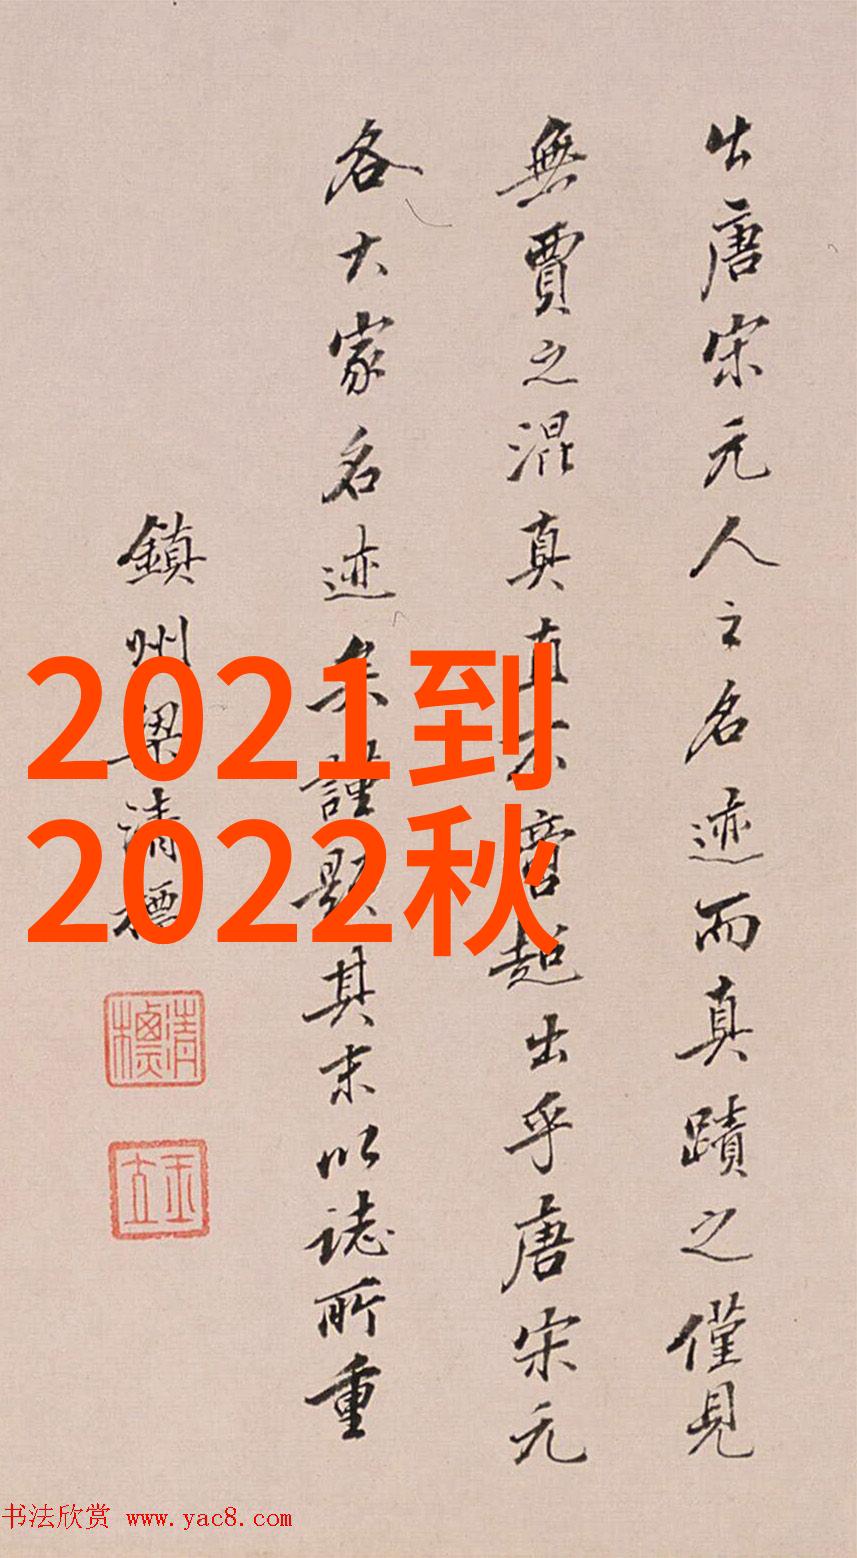 出唐宋元人之名迹而真蹟之僅見
無賈之混真真不啻超出乎唐宋元
各大家名迹矣謹題其末以誌所重
鎮州梁清標
清標
2021到
2022秋
书法欣赏 www.yac8.com